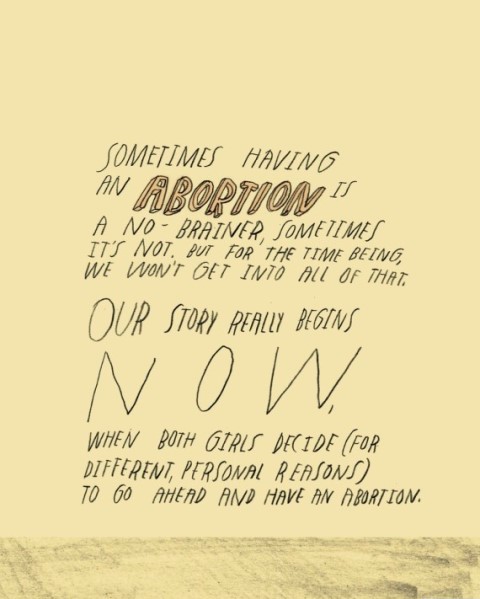 SOMETIMES HAVING
AN ABORTION IS
A NO-BRAINER, SOMETIMES
IT'S NOT. BUT FOR THE TIME BEING,
WE WON'T GET INTO ALL OF THAT.
OUR STORY REALLY BEGINS
NOW,
WHEN BOTH GIRLS DECIDE (FOR
DIFFERENT, PERSONAL REASONS)
TO GO AHEAD AND HAVE AN ABORTION.